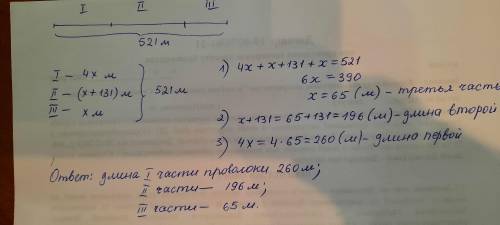 I II III
521 м
I – 4x м
II – (x+131) м
III – x м
521 м
1) 4x + x + 131 + x = 521
6x = 390
x = 65 (м) – третья часть
2) x+131 = 65+131 = 196 (м) – длина второй
3) 4x = 4·65 = 260 (м) – длина первой
Ответ: длина I части проволоки 260 м;
II части – 196 м;
III части – 65 м.